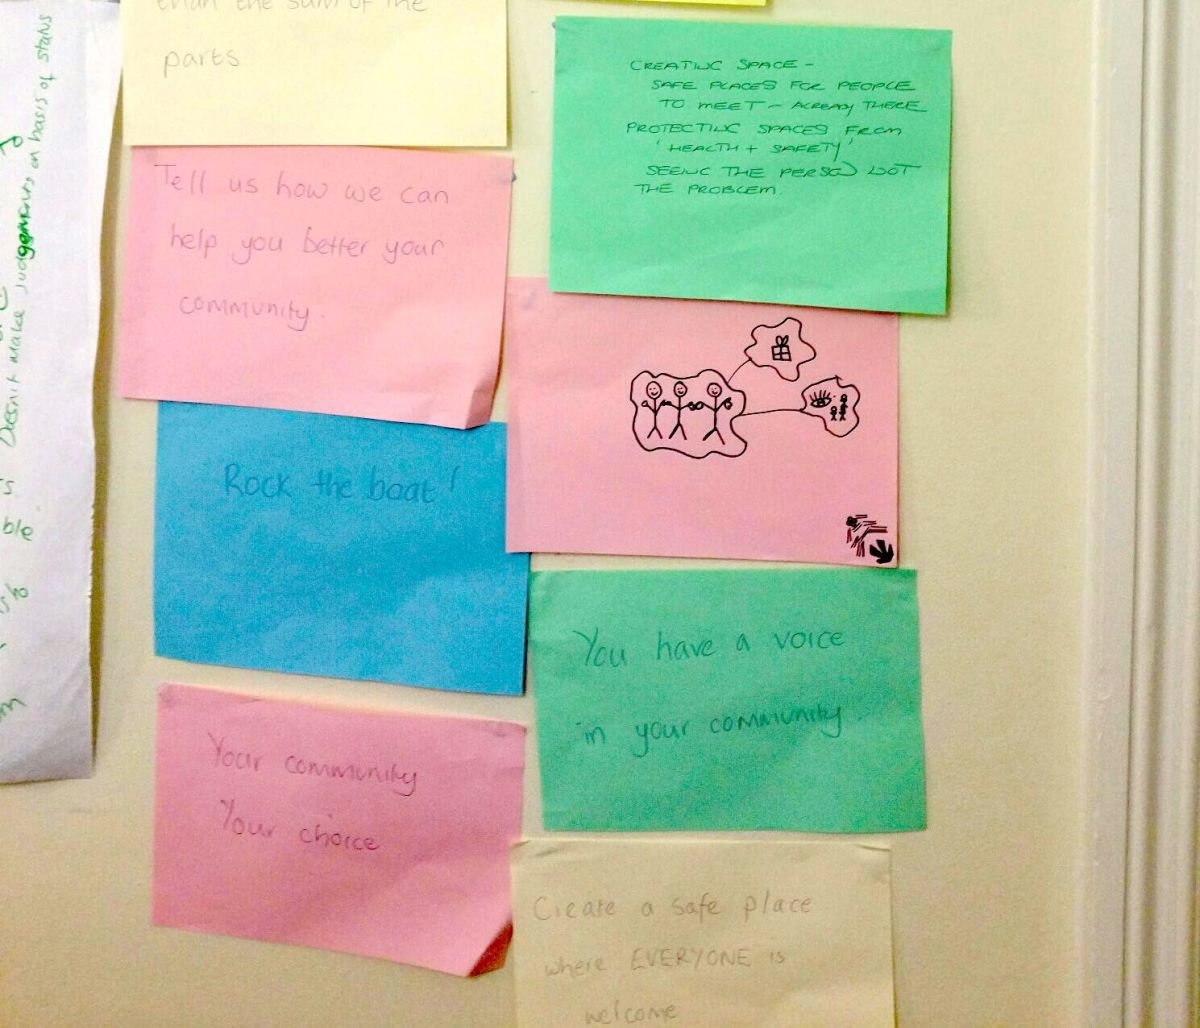 than the sum of the
parts
Tell us how we can
help you better your
community.
Rock the boat!
Your community
Your choice
CREATING SPACE -
SAFE PLACES FOR PEOPLE
TO MEET - ALREADY THERE
PROTECTING SPACES FROM
'HEALTH + SAFETY'
SEEING THE PERSON NOT
THE PROBLEM.
You have a voice
in your community.
Create a safe place
where EVERYONE is
welcome
Doesn't make judgements on basis of status